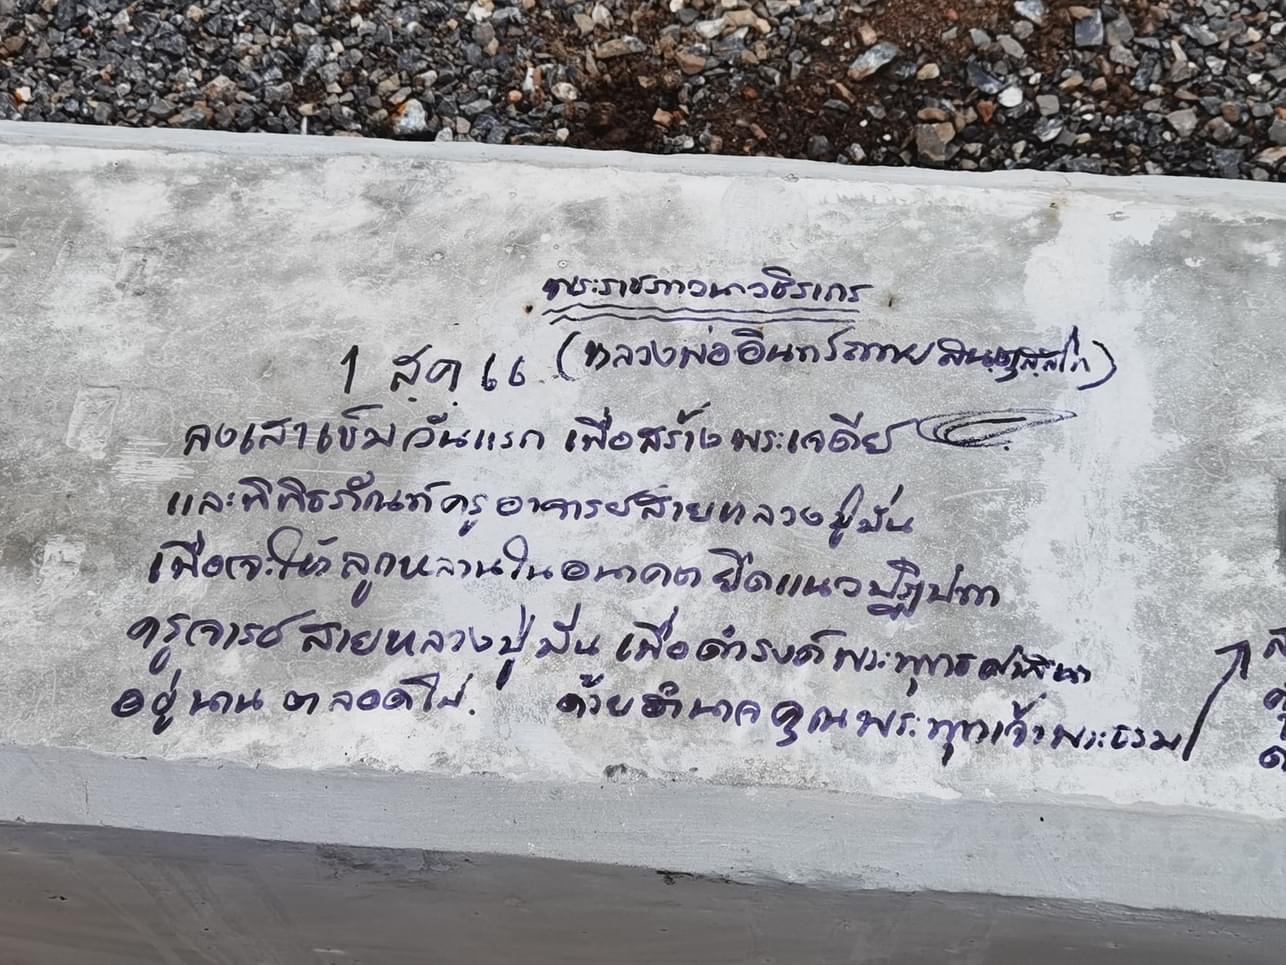 พระราชภาวนาวชิรากร
1 ส.ค. ๖๖ (หลวงพ่ออินทร์ถวาย สันตุสสโก)
ลงเสาเข็มวันแรก เพื่อสร้างพระเจดีย์
และพิพิธภัณฑ์ครูอาจารย์สายหลวงปู่มั่น
เพื่อจะให้ลูกหลานในอนาคตยึดแนวปฏิปทา
ครูจารย์สายหลวงปู่มั่น เพื่อดำรงค์พระพุทธศาสนา
อยู่นานตลอดไป. ด้วยอำนาจคุณพระพุทเจ้าพระธรรม